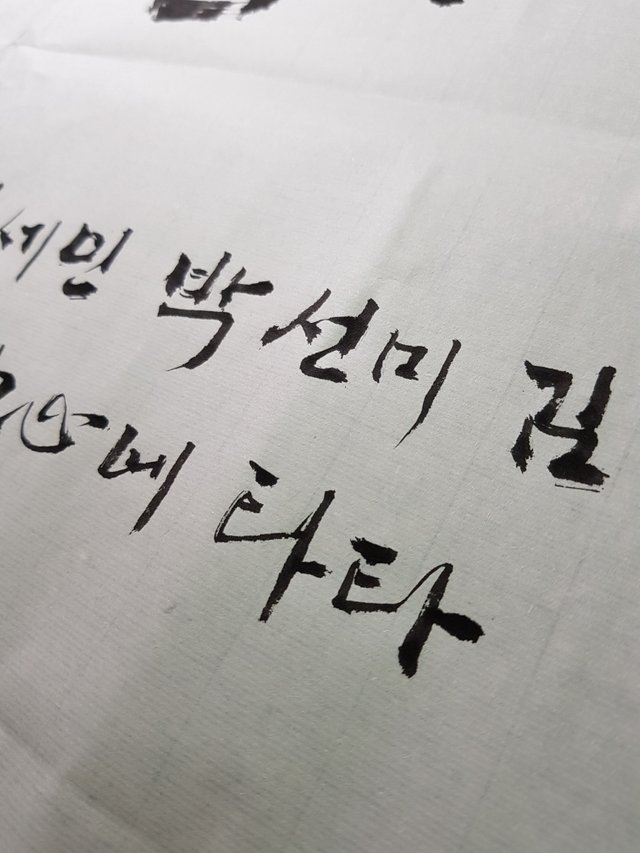 세민 박선미 길
에 타타